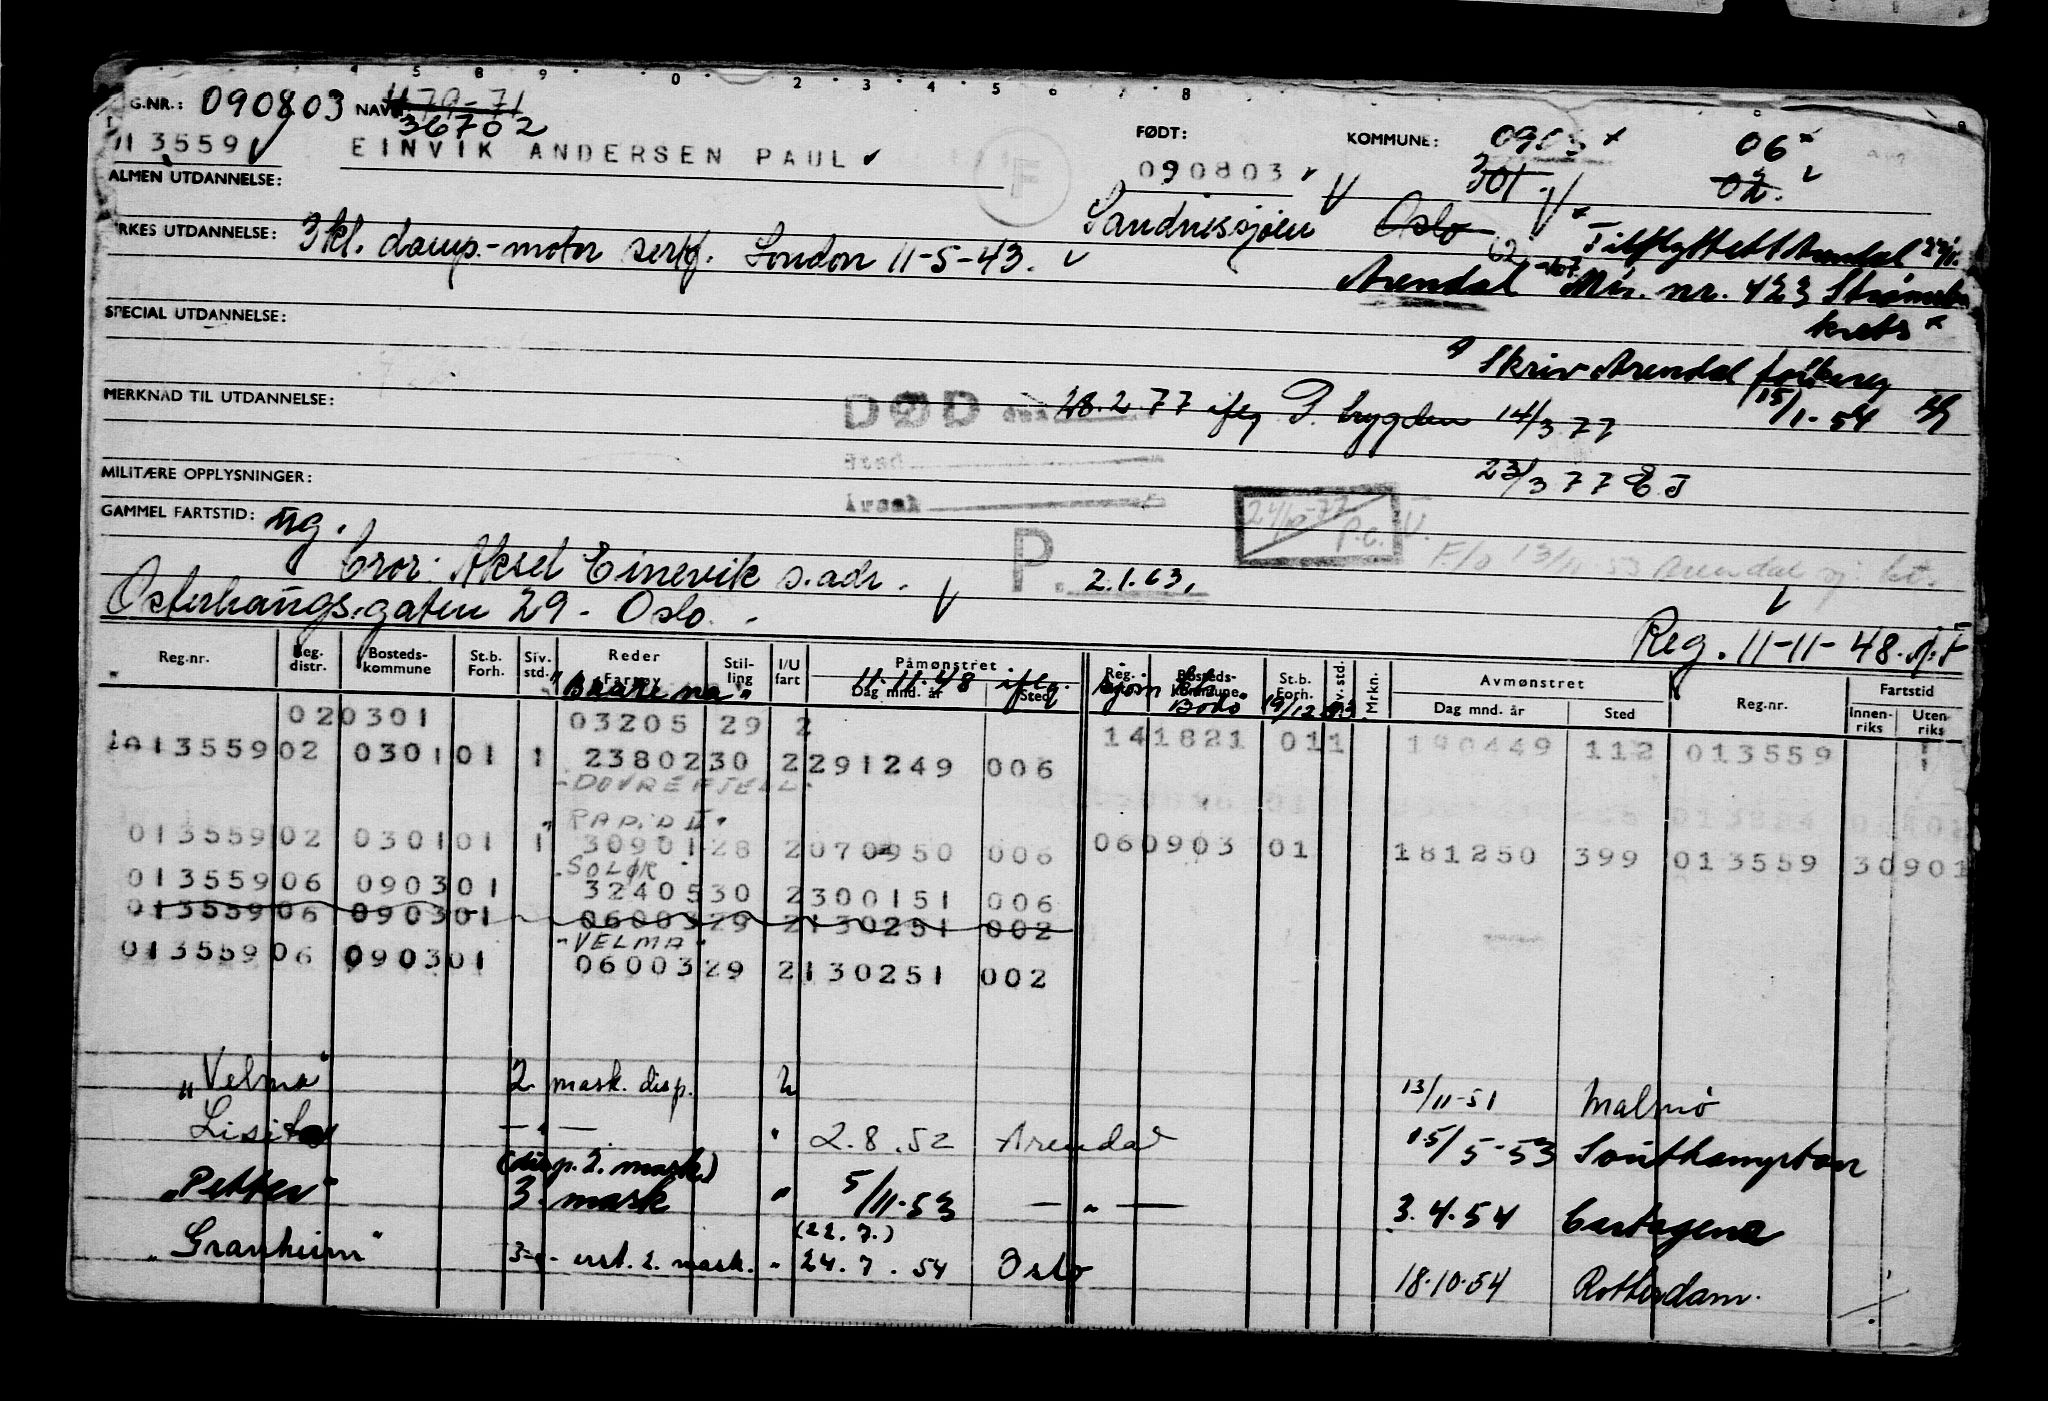 G.NR.: 090803 NAVN 1179-71
36702
113559 EINVIK ANDERSEN PAUL
FØDT:
090803
KOMMUNE: 0903 06
301 02
ALMEN UTDANNELSE:
Sandnessjøen Oslo Tilflyttet Arendal
YRKES UTDANNELSE: 3 kl. damp.-motor sertf. London 11-5-43.
Arendal Mir. nr. 423 Strømsbo
krets
SPECIAL UTDANNELSE:
Skriv Arendal folkereg
15/1-54
MERKNAD TIL UTDANNELSE:
DØD den 28.2 77 iflg P. bygden 14/3 77
Sted
23/3 77 EJ
MILITÆRE OPPLYSNINGER:
Årsak
GAMMEL FARTSTID: ug.
F/o 13/11-53 Arendal sj. kt.
bror: Aksel Einevik s. adr.
P. 2.1.63.
Osterhaugsgaten 29 - Oslo.
Reg. 11-11-48.
Reg.nr. Reg. distr. Bosteds-kommune St.b. Forh. Siv. std. Reder Fartøy Stil-ling I/U fart Påmønstret Dag mnd. år Sted Reg. Bosteds-kommune St.b. Forh. Siv. std. Mrkn. Avmønstret Dag mnd. år Sted Reg.nr. Fartstid Innen-riks Uten-riks
11.11.48 iflg. sjøm. Bodø 19/12
020301 03205 29 2 141821 011 190449 112 013559
013559 02 0301 01 1 23802 30 2 291249 006
"DOVREFJELL"
"RAPID II"
013559 02 0301 01 1 30901 28 2 070950 006 060903 01 181250 399 013559 30901
"SOLØR"
013559 06 0903 01 32405 30 2 300151 006
013559 06 0903 01 06003 29 2 130251 002
"VELMA"
013559 06 0903 01 06003 29 2 130251 002
"Velma" 2 mask. disp. 2 13/11-51 Malmø
Lisita — " — " 2.8.52 Arendal 15/5-53 Southampton
(disp. 2. mask)
"Petter" 3. mask " 5/11.53 — " — 3.4.54 Cartagena
(22.7.)
"Granheim" 3 - " - 2. mask. " 24.7.54 Oslo 18.10.54 Rotterdam.